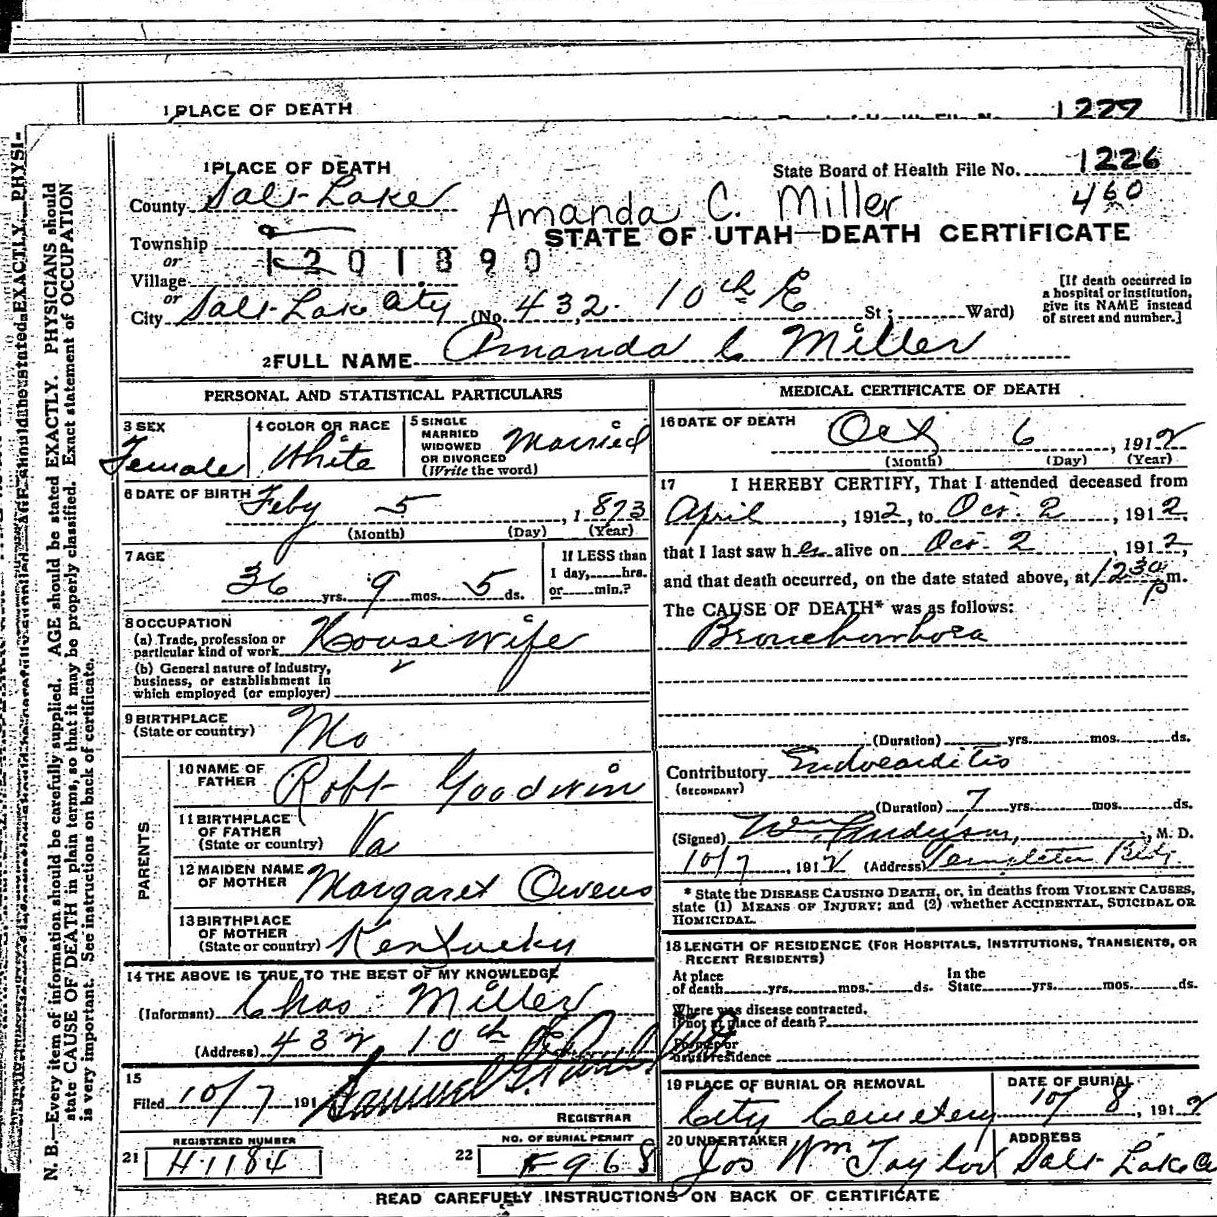 1 PLACE OF DEATH
1227
1 PLACE OF DEATH
State Board of Health File No. 1226
460
County Salt Lake
Amanda C. Miller
Township
STATE OF UTAH—DEATH CERTIFICATE
or
1201890
Village
or
City Salt Lake City (No. 432 10th E St; Ward)
[If death occurred in a hospital or institution, give its NAME instead of street and number.]
2 FULL NAME Amanda C Miller
PERSONAL AND STATISTICAL PARTICULARS
3 SEX
Female
4 COLOR OR RACE
White
5 SINGLE
MARRIED
WIDOWED
OR DIVORCED
(Write the word)
Married
6 DATE OF BIRTH
Feby 5, 1873
(Month) (Day) (Year)
7 AGE
36 yrs. 9 mos. 5 ds.
If LESS than
1 day, hrs.
or min.?
8 OCCUPATION
(a) Trade, profession or
particular kind of work Housewife
(b) General nature of industry,
business, or establishment in
which employed (or employer)
9 BIRTHPLACE
(State or country) Mo
PARENTS
10 NAME OF
FATHER Robt Goodwin
11 BIRTHPLACE
OF FATHER
(State or country) Va
12 MAIDEN NAME
OF MOTHER Margaret Owens
13 BIRTHPLACE
OF MOTHER
(State or country) Kentucky
14 THE ABOVE IS TRUE TO THE BEST OF MY KNOWLEDGE
(Informant) Chas Miller
(Address) 432 10th E
15
Filed 10/7 191
Samuel G.
REGISTRAR
REGISTERED NUMBER
21 H1184
NO. OF BURIAL PERMIT
22 F968
MEDICAL CERTIFICATE OF DEATH
16 DATE OF DEATH
Oct 6, 1912
(Month) (Day) (Year)
17 I HEREBY CERTIFY, That I attended deceased from
April, 1912, to Oct. 2, 1912,
that I last saw her alive on Oct. 2, 1912,
and that death occurred, on the date stated above, at 12 30 p m.
The CAUSE OF DEATH* was as follows:
(Duration) yrs. mos. ds.
Contributory Endocarditis
(SECONDARY)
(Duration) 7 yrs. mos. ds.
(Signed) Wm. Anderson, M. D.
10/7, 1912 (Address) Templeton Bldg.
* State the DISEASE CAUSING DEATH, or, in deaths from VIOLENT CAUSES,
state (1) MEANS OF INJURY; and (2) whether ACCIDENTAL, SUICIDAL OR
HOMICIDAL.
18 LENGTH OF RESIDENCE (FOR HOSPITALS, INSTITUTIONS, TRANSIENTS, OR
RECENT RESIDENTS)
At place
of death yrs. mos. ds.
In the
State yrs. mos. ds.
Where was disease contracted.
if not at place of death?
Former or
usual residence
19 PLACE OF BURIAL OR REMOVAL
City Cemetery
DATE OF BURIAL
10/8, 1912
20 UNDERTAKER
Jos Wm Taylor
ADDRESS
Salt Lake
READ CAREFULLY INSTRUCTIONS ON BACK OF CERTIFICATE
N. B.—Every item of information should be carefully supplied. AGE should be stated EXACTLY. PHYSICIANS should
state CAUSE OF DEATH in plain terms, so that it may be properly classified. Exact statement of OCCUPATION
is very important. See instructions on back of certificate.